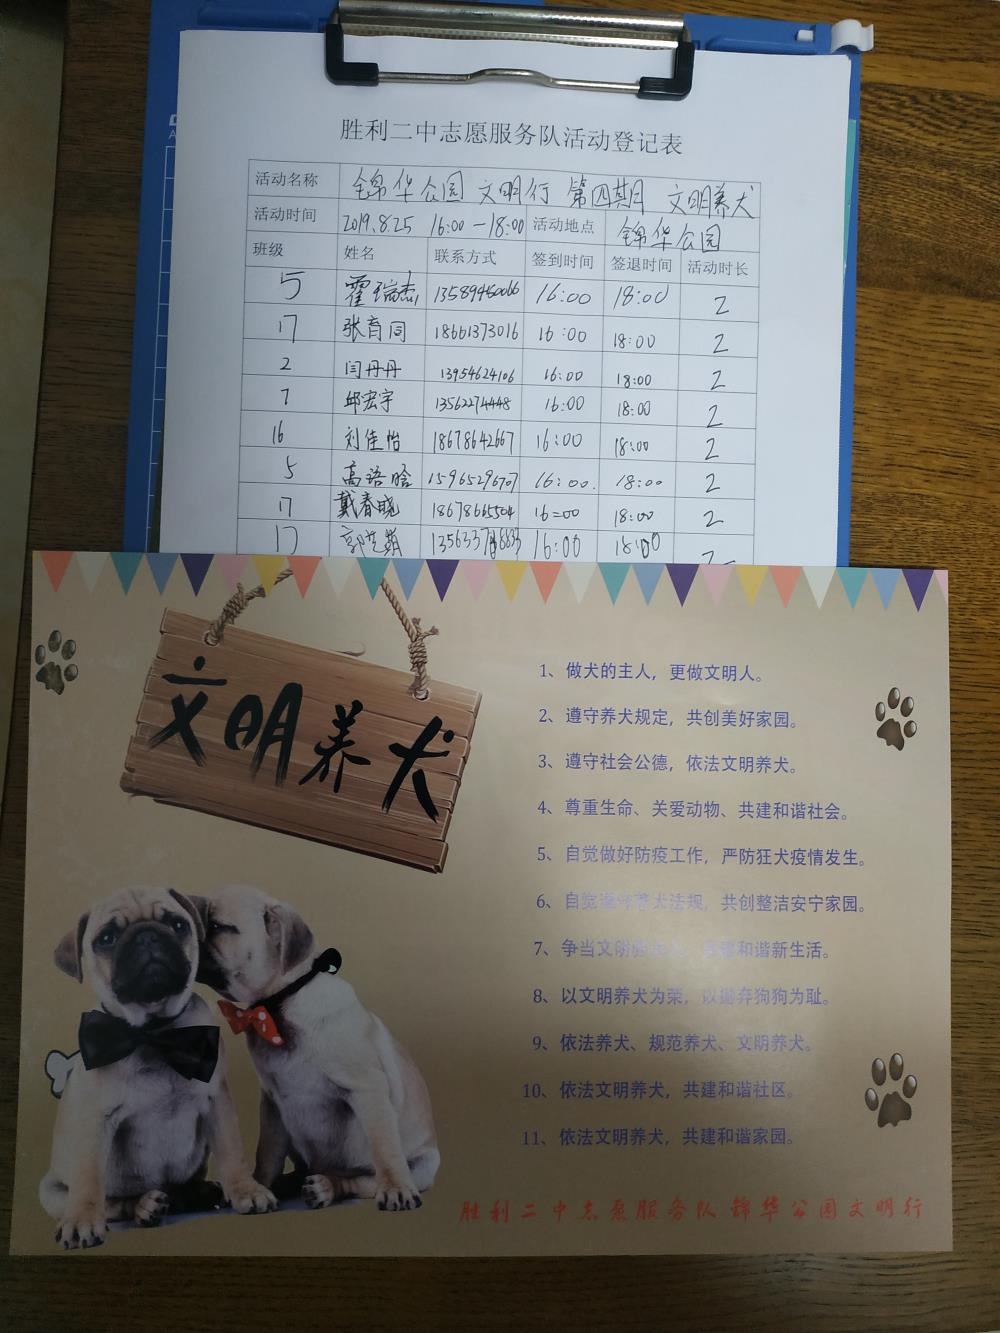 胜利二中志愿服务队活动登记表
活动名称 锦华公园 文明行 第四期 文明养犬
活动时间 2019.8.25 16:00-18:00 活动地点 锦华公园
班级 姓名 联系方式 签到时间 签退时间 活动时长
5 霍瑞杰 13589450066 16:00 18:00 2
17 张育同 18661373016 16:00 18:00 2
2 闫丹丹 13954624106 16:00 18:00 2
7 邱宏宇 13562274448 16:00 18:00 2
16 刘佳怡 18678642667 16:00 18:00 2
5 高语晗 15965296707 16:00. 18:00 2
17 戴春晓 18678665504 16=00 18:00 2
17 16:00 18:00 2
文明养犬
1、做犬的主人，更做文明人。
2、遵守养犬规定，共创美好家园。
3、遵守社会公德，依法文明养犬。
4、尊重生命、关爱动物、共建和谐社会。
5、自觉做好防疫工作，严防狂犬疫情发生。
6、自觉遵守养犬法规，共创整洁安宁家园。
7、争当文明 和谐新生活。
8、以文明养犬为荣，以抛弃狗狗为耻。
9、依法养犬、规范养犬、文明养犬。
10、依法文明养犬，共建和谐社区。
11、依法文明养犬，共建和谐家园。
胜利二中志愿服务队锦华公园文明行